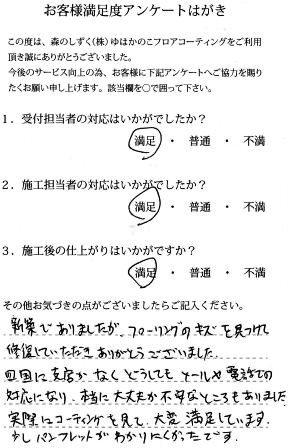 お客様満足度アンケートはがき
この度は、森のしずく(株)ゆはかのこフロアコーティングをご利用
頂き誠にありがとうございました。
今後のサービス向上の為、お客様に下記アンケートへご協力を賜り
たくお願い申し上げます。該当欄を○で囲って下さい。
1．受付担当者の対応はいかがでしたか？
満足 ・ 普通 ・ 不満
2．施工担当者の対応はいかがでしたか？
満足 ・ 普通 ・ 不満
3．施工後の仕上がりはいかがですか？
満足 ・ 普通 ・ 不満
その他お気づきの点がございましたらご記入ください。
新築でありましたが、フローリングのキズを見つけて
修復していただきありがとうございました。
四国に支店がなくどうしてもメールや電話での
対応になり、本当に大丈夫か不安なところもありました
実際にコーティングを見て、大変満足しています。
少しパンフレットがわかりにくかったです